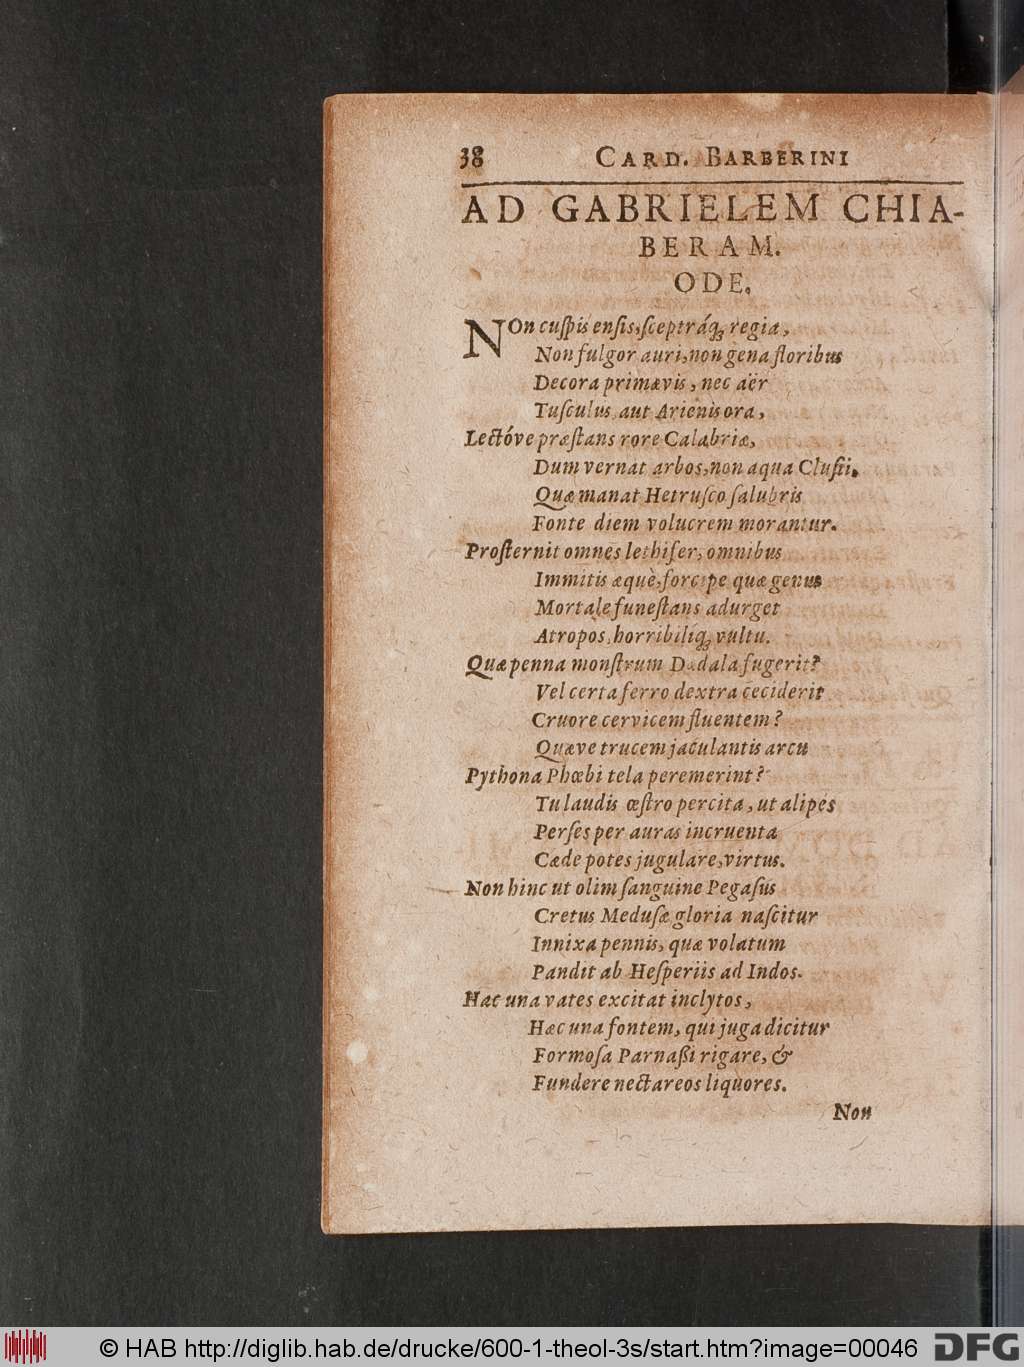 38 CARD. BARBERINI
AD GABRIELEM CHIA-
BERAM.
ODE.
NOn cuſpis enſis, ſceptráq; regia,
Non fulgor auri, non gena floribus
Decora primævis, nec aër
Tuſculus aut Arienis ora,
Lectóve præſtans rore Calabriæ,
Dum vernat arbos, non aqua Cluſii,
Quæ manat Hetruſco ſalubris
Fonte diem volucrem morantur.
Proſternit omnes lethifer, omnibus
Immitis æquè, forcipe quæ genus
Mortale funeſtans adurget
Atropos, horribilíq; vultu.
Quæ penna monſtrum Dædala fugerit?
Vel certa ferro dextra ceciderit
Cruore cervicem fluentem?
Quæve trucem jaculantis arcu
Pythona Phœbi tela peremerint?
Tu laudis œſtro percita, ut alipes
Perſes per auras incruenta
Cæde potes jugulare, virtus.
Non hinc ut olim ſanguine Pegaſus
Cretus Meduſæ gloria naſcitur
Innixa pennis, quæ volatum
Pandit ab Heſperiis ad Indos.
Hac una vates excitat inclytos,
Hæc una fontem, qui juga dicitur
Formoſa Parnaßi rigare, &
Fundere nectareos liquores.
Non
© HAB http://diglib.hab.de/drucke/600-1-theol-3s/start.htm?image=00046
DFG